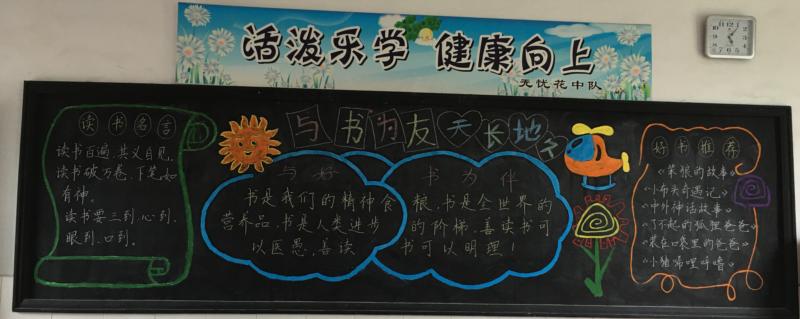 活泼乐学 健康向上
无忧花中队
与书为友 天长地久
读书名言
读书百遍,其义自见。
读书破万卷,下笔如
有神。
读书要三到,心到、
眼到、口到。
与好书为伴
书是我们的精神食
营养品,书是人类进步
以医愚,善读
粮,书是全世界的
的阶梯,善读书可
书可以明理!
好书推荐
《笨狼的故事》
《小布头奇遇记》
《中外神话故事》
《了不起的狐狸爸爸》
《装在口袋里的爸爸》
《小猪唏哩呼噜》